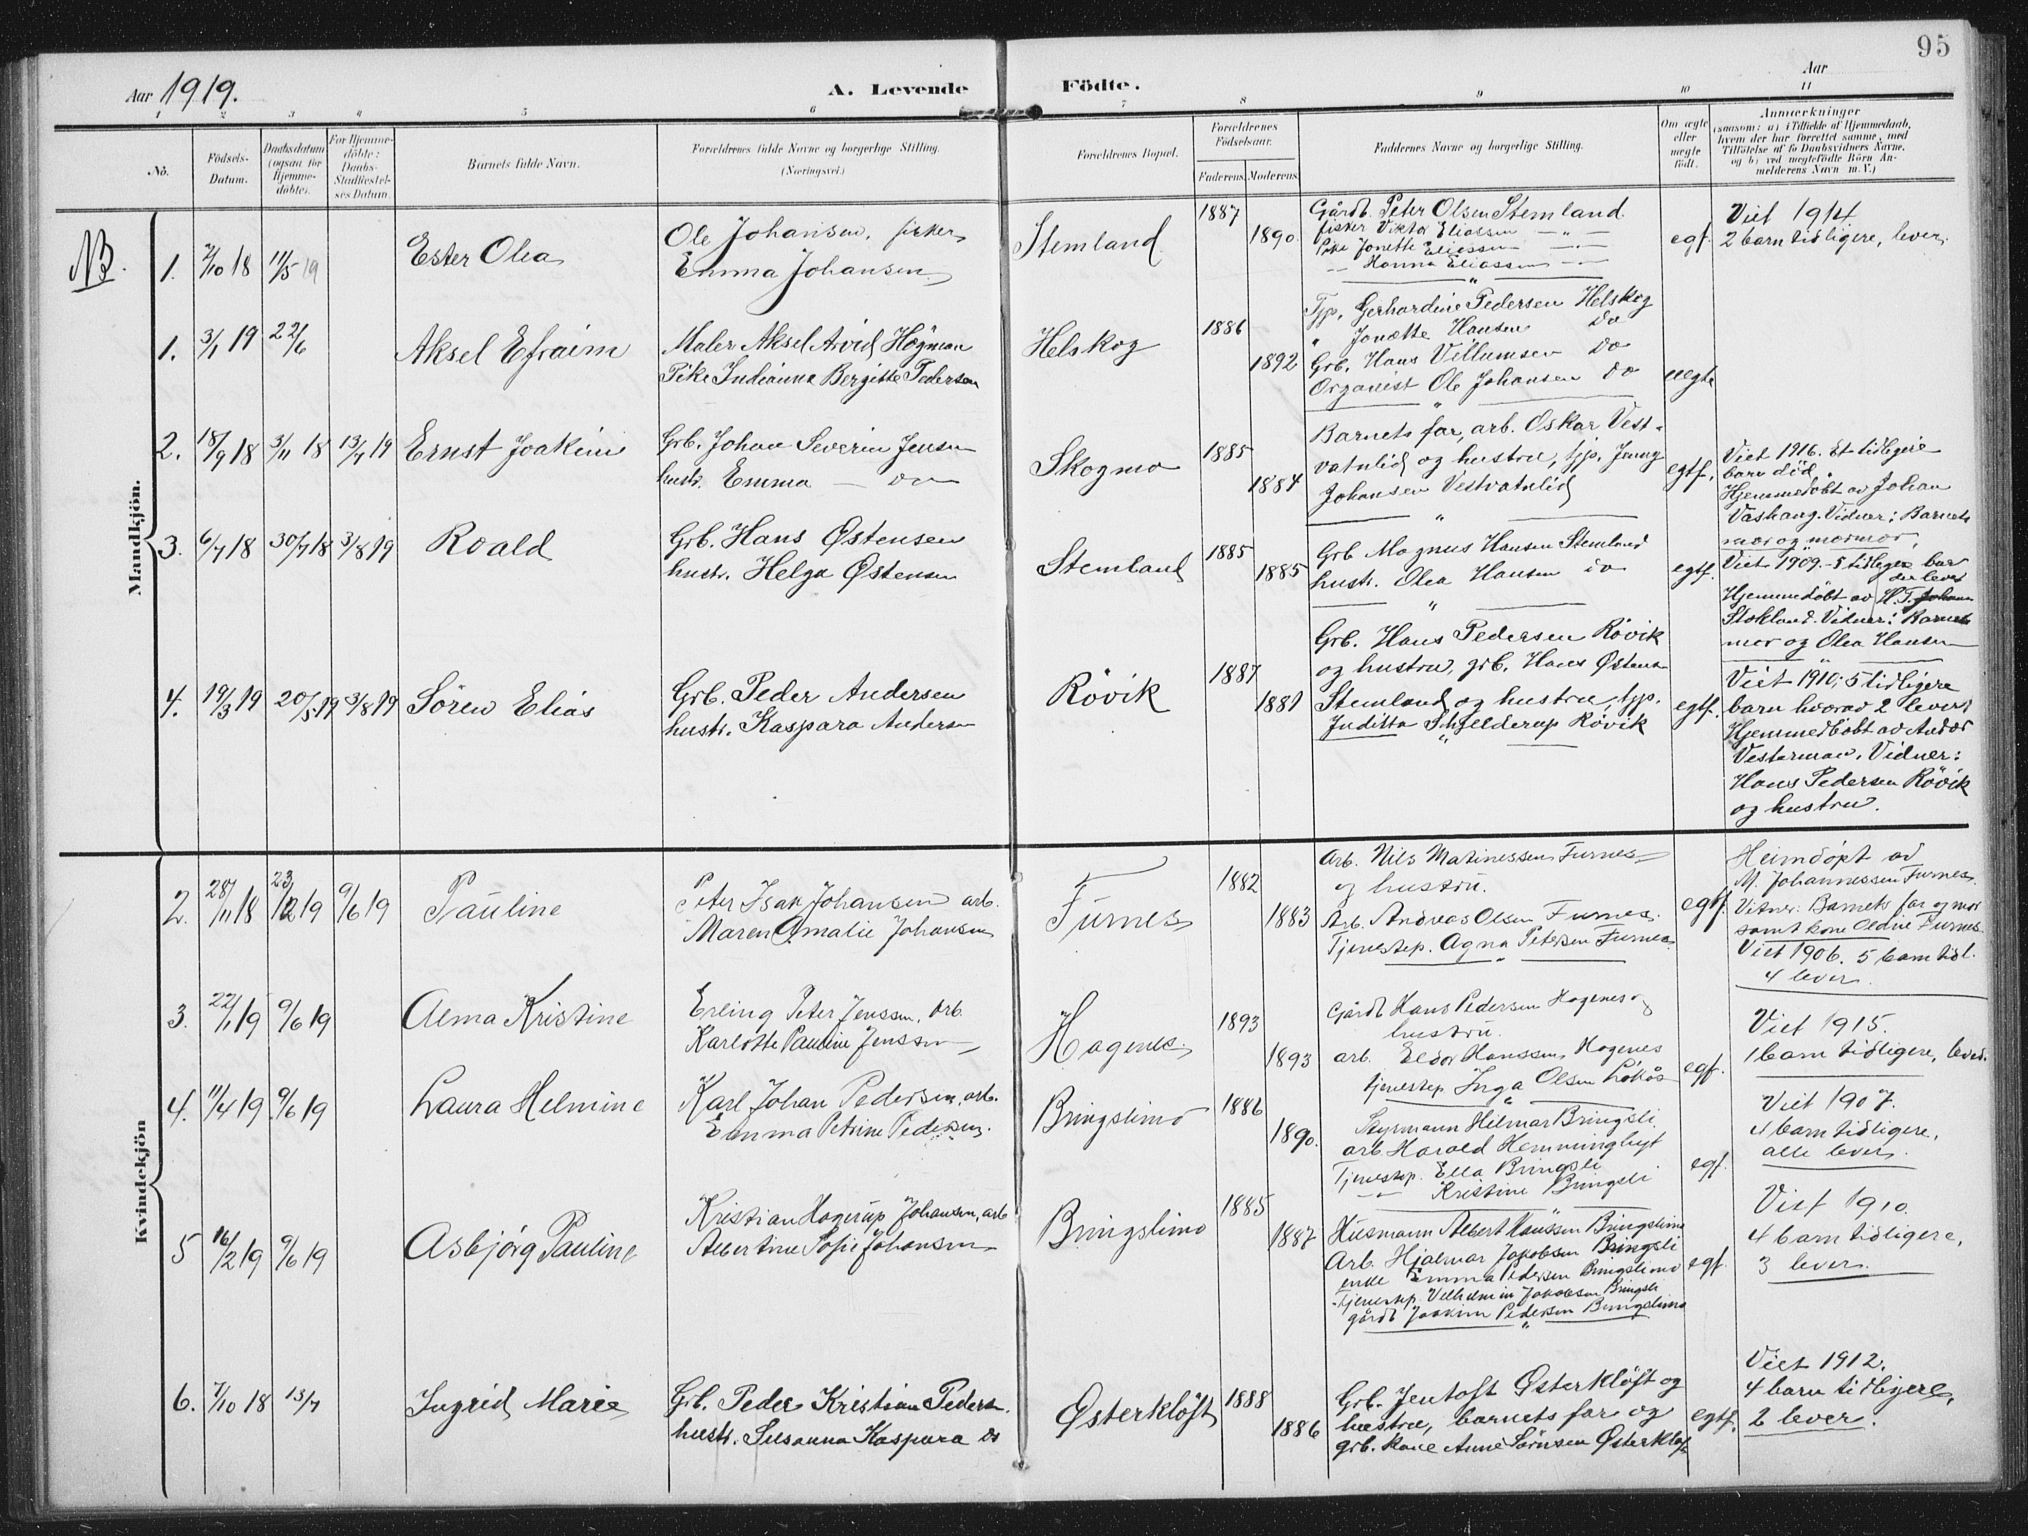 95
Aar 1919.
A. Levende Födte.
Aar
1 2 3 4 5 6 7 8 9 10 11
No.
Födsels-Datum.
Daabsdatum (ogsaa for Hjemmedöbte).
For Hjemmedöbte: Daabs-Stadfæstelses Datum.
Barnets fulde Navn.
Forældrenes fulde Navne og borgerlige Stilling.
(Næringsvei.)
Forældrenes Bopæl.
Forældrenes Födselsaar.
Faderens. Moderens.
Faddernes Navne og borgerlige Stilling.
Om ægte eller uægte født.
Anmærkninger
(saasom: a) i Tilfælde af Hjemmedaab, hvem der har forrettet samme, med Tilföielse af to Daabsvidners Navne, og b) ved uegtefödte Börn Anmelderens Navn m. V.)
Mandkjön.
NB. 1. 2/10 18 11/5 19 Ester Olea
Ole Johansen, fisker
Emma Johansen
Stemland 1887 1890
Gårdb. Peter Olsen Stemland
fisker Viktor Eliassen — " —
Pike Jonette Eliassen — " —
— " — Hanna Eliassen — " —
egf.
Viet 1914
2 barn tidligere, lever.
1. 3/1 19 22/6 Aksel Efraim
Maler Aksel Arvid Högman
Pike Indianna Bergitte Pedersen
Helskog 1886 1892
Tjp. Gerhardine Pedersen Helskog
" Jonette Hansen Do
Grb. Hans Villumsen Do
Organist Ole Johansen Do
uegte
2. 18/9 18 3/11 18 13/7 19 Ernst Joakim
Grb. Johan Severin Jensen
hustr. Emma — Do
Skogmo 1885 1884
Barnets far, arb. Oskar Vest-
vatnlid og hustru, tjp. Jenny
Johansen Vestvatnlid
egtf.
Viet 1916. Et tidligere
barn död.
Hjemmedöbt av Johan
Vashaug. Vidner: Barnets
mor og mormor.
3. 6/7 18 30/7 18 3/8 19 Roald
Grb. Hans Østensen
hustr. Helga Østensen
Stemland 1885 1885
Grb Magnus Hansen Stemland
hustr. Olea Hansen do
egtf.
Viet 1909. - 5 tidligere bar
der lever
Hjemmedöbt av H. T. Johan
Stokland. Vidner: Barnets
mor og Olea Hansen
4. 19/3 19 20/5 19 3/8 19 Sören Elias
Grb. Peder Andersen
hustr. Kaspara Andersen
Rövik 1887 1881
Grb. Hans Pedersen Rövik
og hustru, grb. Hans Østens
Stemland og hustru, tjp.
Juditta Schjelderup Rövik
egtf.
Viet 1910; 5 tidligere
barn hvorav 2 lever;
Hjemmedöbt av Andor
Vesterman. Vidner:
Hans Pedersen Rövik
og hustru.
Kvindekjön
2. 28/11 18 23/12 19 9/6 19 Pauline
Peter Isak Johansen arb.
Maren Amalie Johansen
Furnes 1882 1883
Arb. Nils Matinessen Furnes
og hustru.
Arb. Andreas Olsen Furnes.
Tjenestep. Agna Petersen Furnes
egtf.
Heimdöpt av
M. Johannessen Furnes.
Vitner: Barnets far og mor
samt kone Oldine Furnes.
Viet 1906. 5 barn tidl.
4 lever.
3. 22/1 19 9/6 19 Alma Kristine
Erling Peter Jenssen, arb.
Karlotte Pauline Jenssen
Hagenes 1893 1893
Gårdb Hans Pedersen Hagenes og
hustru.
arb. Eldor Hanssen, Hagenes
tjenestep Inga Olsen Lökås
egf.
Viet 1915.
1 barn tidligere, lever.
4. 11/4 19 9/6 19 Laura Helmine
Karl Johan Pedersen, arb.
Emma Petrine Pedersen.
Bringslimo 1886 1890.
Styrmann Hilmar Bringsli.
arb. Harold Hemminghyt
Tjenestep. Ella Bringsli
— " — Kristine Bringsli
egf.
Viet 1907.
4 barn tidligere,
alle lever.
5 16/2 19 9/6 19 Asbjörg Pauline
Kristian Hagerup Johansen, arb
Albertine Sofie Johansen
Bringslimo 1885 1887
Husmann Albert Hanssen Bringslimo
Arb. Hjalmar Jakobsen Bringsli
enke Emma Pedersen Bringslimo
Tjenestep. Vilhelmin Jakobsen Bringsli
gårdb Joakim Pedersen Bringslimo
egf.
Viet 1910.
4 barn tidligere,
3 lever.
6. 7/10 18 13/7 Ingrid Marie
Grb. Peder Kristian Peders.
hustr. Susanna Kaspara Do
Østerklöft 1888 1886
Grb. Jentoft Østerklöft og
hustru, barnets far og
grb. kone Anne Sörnsen Østerklöft
egtf.
Viet 1912.
4 barn tidligere,
2 lever.